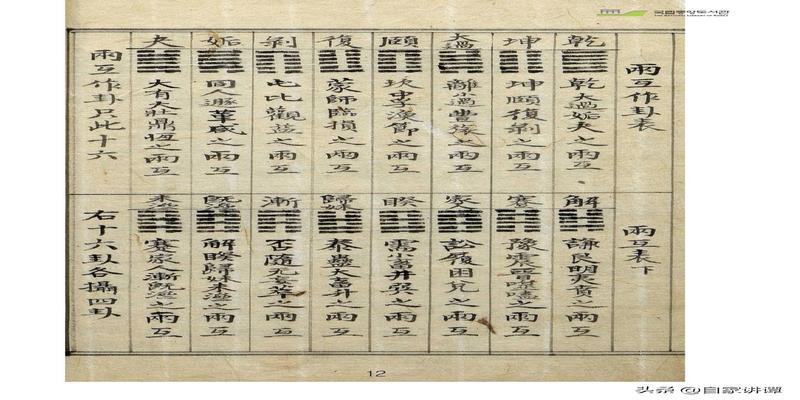 국립중앙도서관
THE NATIONAL LIBRARY OF KOREA
兩互作卦表
乾
乾大過姤夬之兩互
坤
坤頤復剝之兩互
大過
離小過豊旅之兩互
頤
坎中孚渙節之兩互
復
蒙師臨損之兩互
剝
屯比觀益之兩互
姤
同遯革咸之兩互
夬
大有大壯鼎恒之兩互
兩互作卦只此十六
兩互表下
解
謙艮明夷賁之兩互
蹇
豫震晉噬嗑之兩互
家
訟履困兌之兩互
睽
需小畜井巽之兩互
歸妹
泰蠱大畜升之兩互
漸
否隨无妄萃之兩互
既濟
解睽歸妹未濟之兩互
未濟
蹇家漸既濟之兩互
右十六卦各攝四卦
12
头条 @自家讲谭